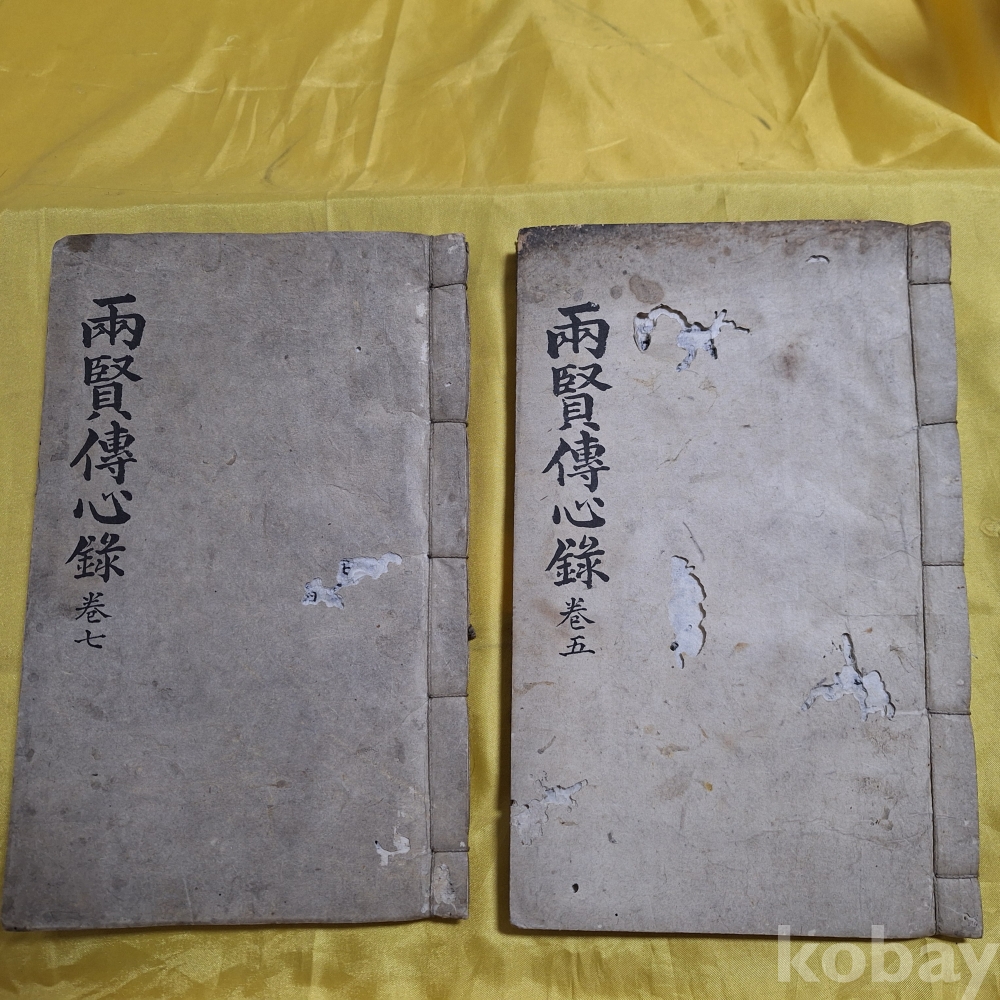 兩賢傳心錄
卷七
兩賢傳心錄
卷五
kobay